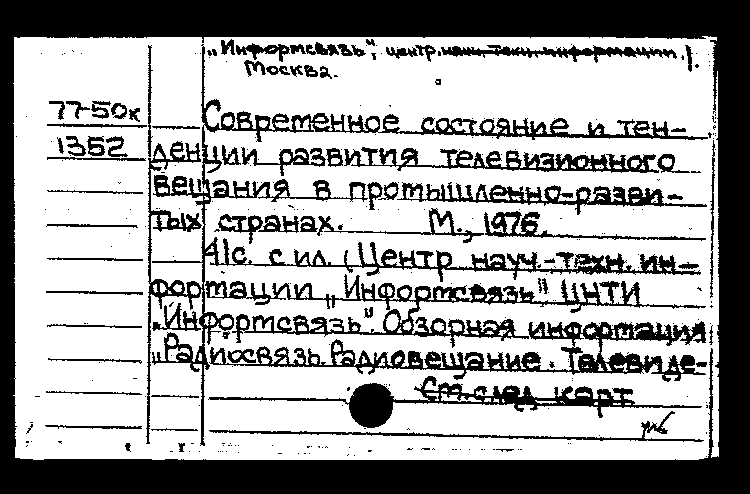 „Информсвязь", центр науч. техн. информации.
Москва.
77-50к
Современное состояние и тен-
1352
денции развития телевизионного
вещания в промышленно-разви-
тых странах. М., 1976.
41с. с ил. (Центр науч.-техн. ин-
формации „Информсвязь" ЦНТИ
„Информсвязь". Обзорная информация
„Радиосвязь. Радиовещание. Телевиде-
См. след. карт.